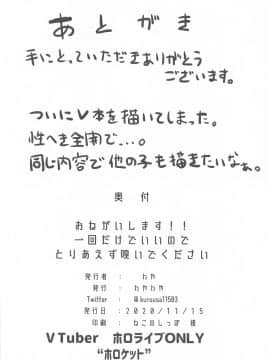 あとがき
手にとっていただきありがとう
ございます。
ついにV本を描いてしまった。
性へき全開で…。
同じ内容で他の子も描きたいなぁ。
奥付
おねがいします!!
一回だけでいいので
とりあえず吸いでください
発行者 :
発行 :
Twitter : @kurousa11583
発行日 : 2020/11/15
印刷 : ねこのしっぽ 様
VTuber ホロライブONLY
“ホロケット”